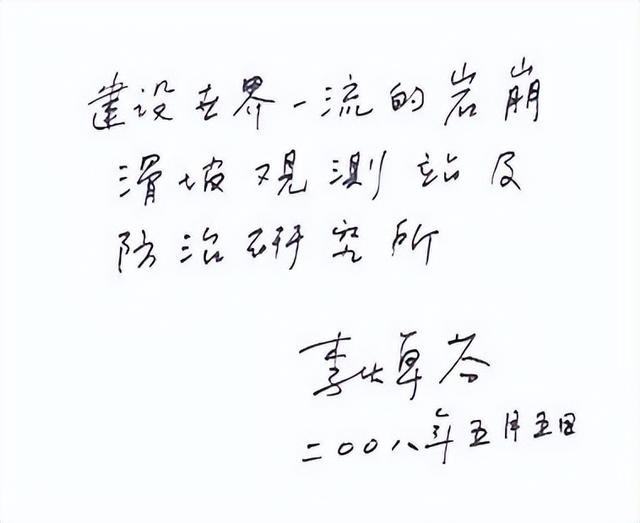 建设世界一流的岩崩
滑坡观测站及
防治研究所
李焯芬
二〇〇八年五月五日